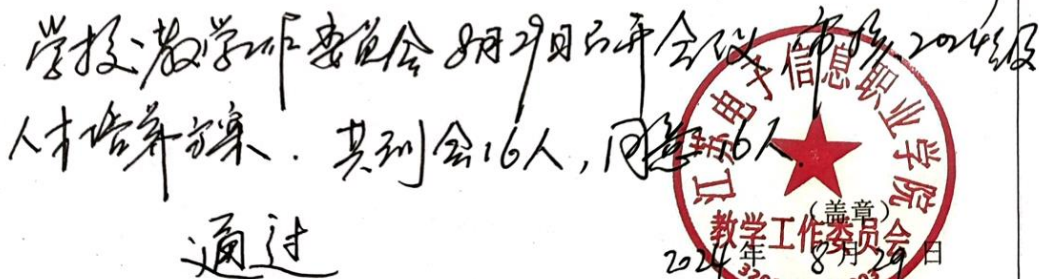 学校教学工作委员会8月29日召开会议 审核2024级
人才培养方案. 共到会16人,同意16人.
通过
江苏电子信息职业学院
教学工作委员会
(盖章)
2024年 8月29日